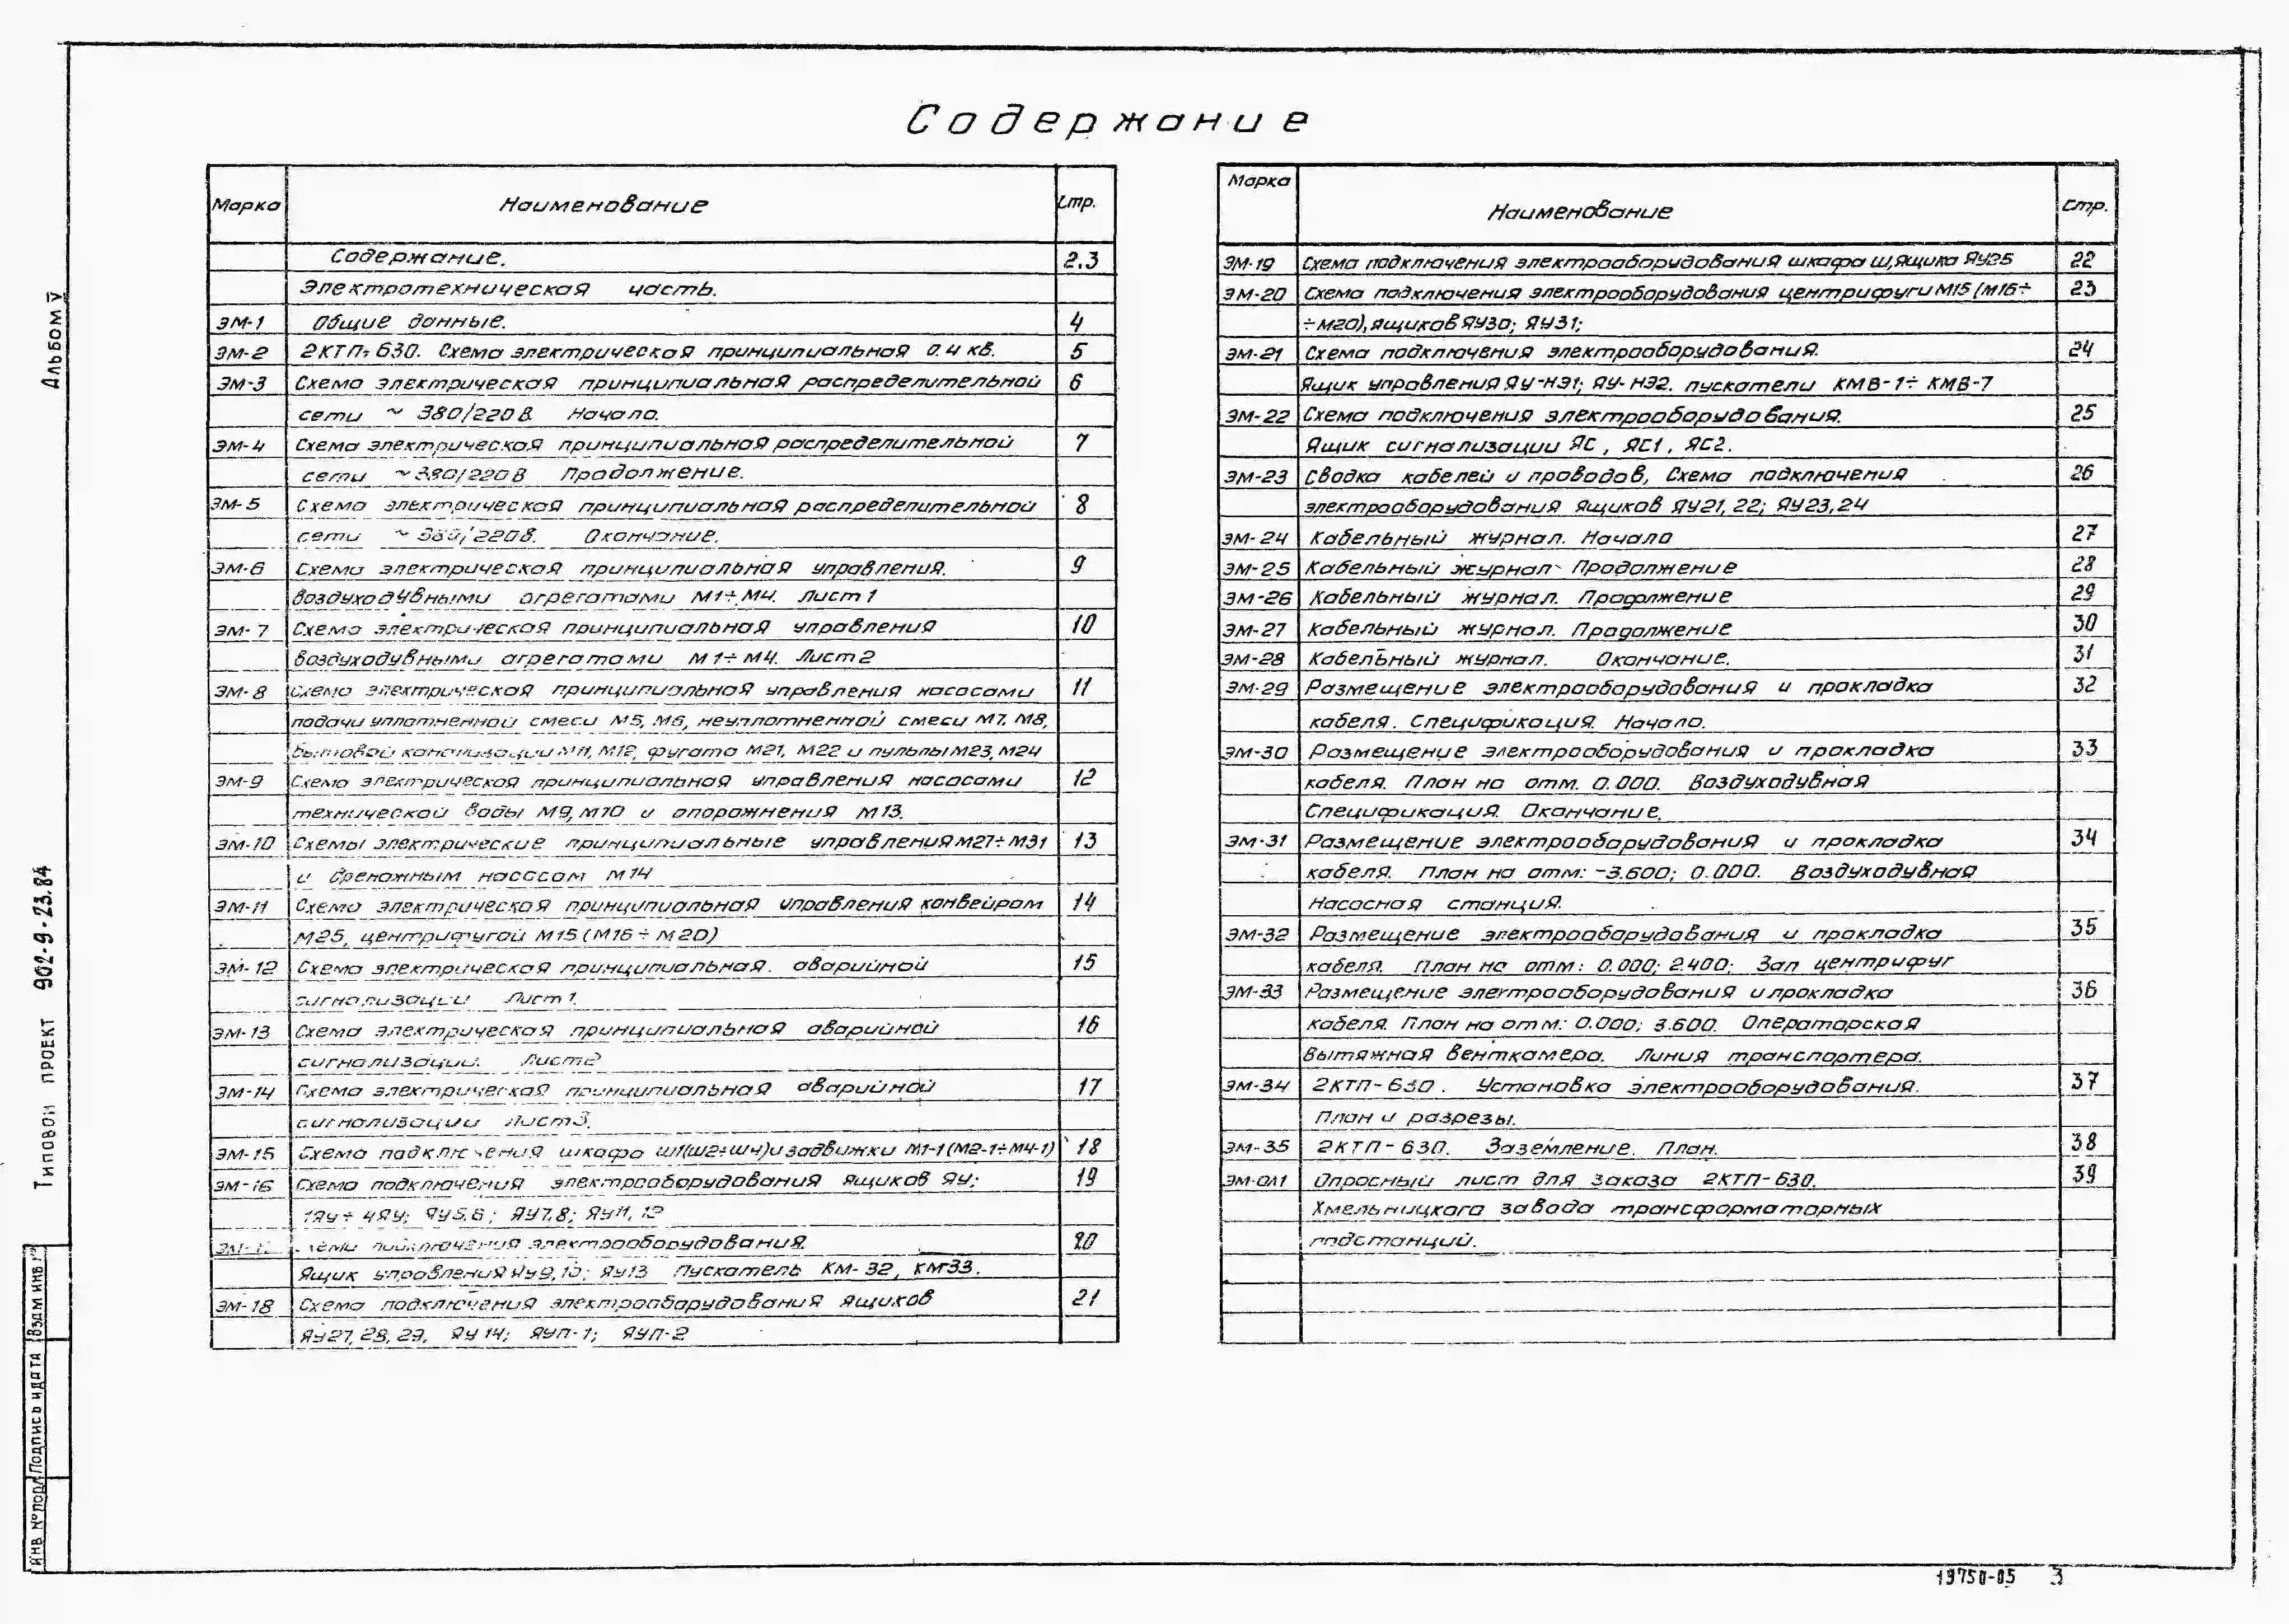 Содержание
Марка Наименование Стр.
Содержание. 2.3
Электротехническая часть.
ЭМ-1 Общие данные. 4
ЭМ-2 2КТП-630. Схема электрическая принципиальная 0.4 кв. 5
ЭМ-3 Схема электрическая принципиальная распределительной 6
сети ~ 380/220 В. Начало.
ЭМ-4 Схема электрическая принципиальная распределительной 7
сети ~380/220 В Продолжение.
ЭМ-5 Схема электрическая принципиальная распределительной 8
сети ~ 380/220 В. Окончание.
ЭМ-6 Схема электрическая принципиальная управления. 9
воздуходувными агрегатами М1÷М4. Лист 1
ЭМ-7 Схема электрическая принципиальная управления 10
воздуходувными агрегатами М1÷М4. Лист 2
ЭМ-8 Схема электрическая принципиальная управления насосами 11
подачи уплотненной смеси М5, М6, неуплотненной смеси М7, М8,
бытовой канализации М11, М12, фугата М21, М22 и пульпы М23, М24
ЭМ-9 Схема электрическая принципиальная управления насосами 12
технической воды М9, М10 и опорожнения М13.
ЭМ-10 Схемы электрические принципиальные управления М27÷М31 13
и дренажным насосом М14
ЭМ-11 Схема электрическая принципиальная управления конвейром 14
М25, центрифугой М15 (М16÷М20)
ЭМ-12 Схема электрическая принципиальная. аварийной 15
сигнализации Лист 1.
ЭМ-13 Схема электрическая принципиальная аварийной 16
сигнализации. Лист 2
ЭМ-14 Схема электрическая принципиальная аварийной 17
сигнализации Лист 3.
ЭМ-15 Схема подключения шкафа Ш1(Ш2÷Ш4) и задвижки М1-1 (М2-1÷М4-1) 18
ЭМ-16 Схема подключения электрооборудования ящиков ЯУ; 19
1ЯУ÷4ЯУ; ЯУ5,6; ЯУ7,8; ЯУ11, 12
Схема подключения электрооборудования. 20
Ящик управления ЯУ9,10; ЯУ13 Пускатель КМ-32, КМ33.
ЭМ-18 Схема подключения электрооборудования ящиков 21
ЯУ27, 28, 29, ЯУ14; ЯУП-1; ЯУП-2
Марка Наименование Стр.
ЭМ-19 Схема подключения электрооборудования шкафа Ш, ящика ЯУ25 22
ЭМ-20 Схема подключения электрооборудования центрифуги М15 (М16÷ 23
÷М20), ящиков ЯУ30; ЯУ31;
ЭМ-21 Схема подключения электрооборудования. 24
Ящик управления ЯУ-НЭ1; ЯУ-НЭ2. пускатели КМВ-1÷КМВ-7
ЭМ-22 Схема подключения электрооборудования. 25
Ящик сигнализации ЯС, ЯС1, ЯС2.
ЭМ-23 Сводка кабелей и проводов, Схема подключения 26
электрооборудования ящиков ЯУ21, 22; ЯУ23, 24
ЭМ-24 Кабельный журнал. Начало 27
ЭМ-25 Кабельный журнал- Продолжение 28
ЭМ-26 Кабельный журнал. Продолжение 29
ЭМ-27 Кабельный журнал. Продолжение 30
ЭМ-28 Кабельный журнал. Окончание. 31
ЭМ-29 Размещение электрооборудования и прокладка 32
кабеля. Спецификация. Начало.
ЭМ-30 Размещение электрооборудования и прокладка 33
кабеля. План на отм. 0.000. Воздуходувная
Спецификация. Окончание.
ЭМ-31 Размещение электрооборудования и прокладка 34
кабеля. План на отм: -3.600; 0.000. Воздуходувная
Насосная станция.
ЭМ-32 Размещение электрооборудования и прокладка 35
кабеля. План на отм: 0.000; 2.400: Зал центрифуг
ЭМ-33 Размещение электрооборудования и прокладка 36
кабеля. План на отм: 0.000; 3.600. Операторская
Вытяжная венткамера. Линия транспортера.
ЭМ-34 2КТП-630. Установка электрооборудования. 37
План и разрезы.
ЭМ-35 2КТП-630. Заземление. План. 38
ЭМ-ОЛ1 Опросный лист для заказа 2КТП-630. 39
Хмельницкого завода трансформаторных
подстанций.
Альбом V
Типовой проект 902-9-23.84
Взам инв №
Подпись и дата
Инв №подл
19750-05 3